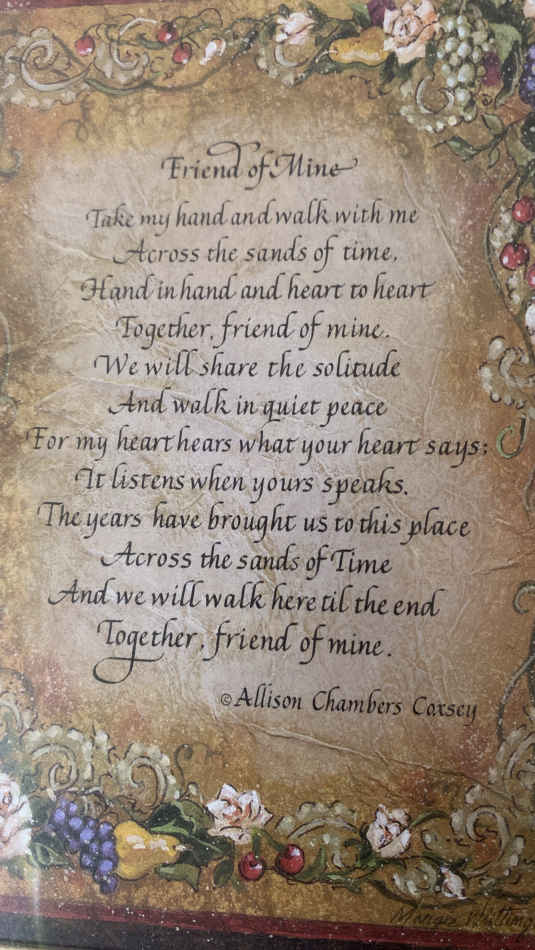 Friend of Mine
Take my hand and walk with me
Across the sands of time,
Hand in hand and heart to heart
Together, friend of mine.
We will share the solitude
And walk in quiet peace
For my heart hears what your heart says;
It listens when yours speaks.
The years have brought us to this place
Across the sands of Time
And we will walk here til the end
Together, friend of mine.
© Allison Chambers Coxsey